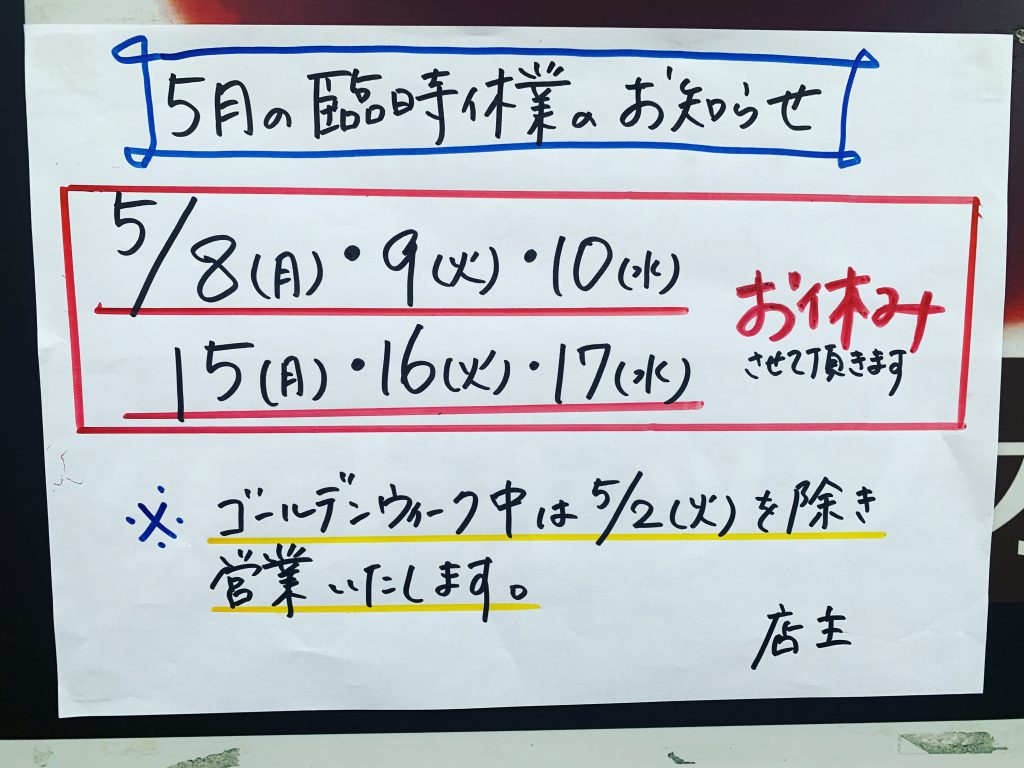 5月の臨時休業のお知らせ
5/8(月)・9(火)・10(水)
15(月)・16(火)・17(水)
お休み
させて頂きます
※ ゴールデンウィーク中は5/2(火)を除き
営業いたします。
店主